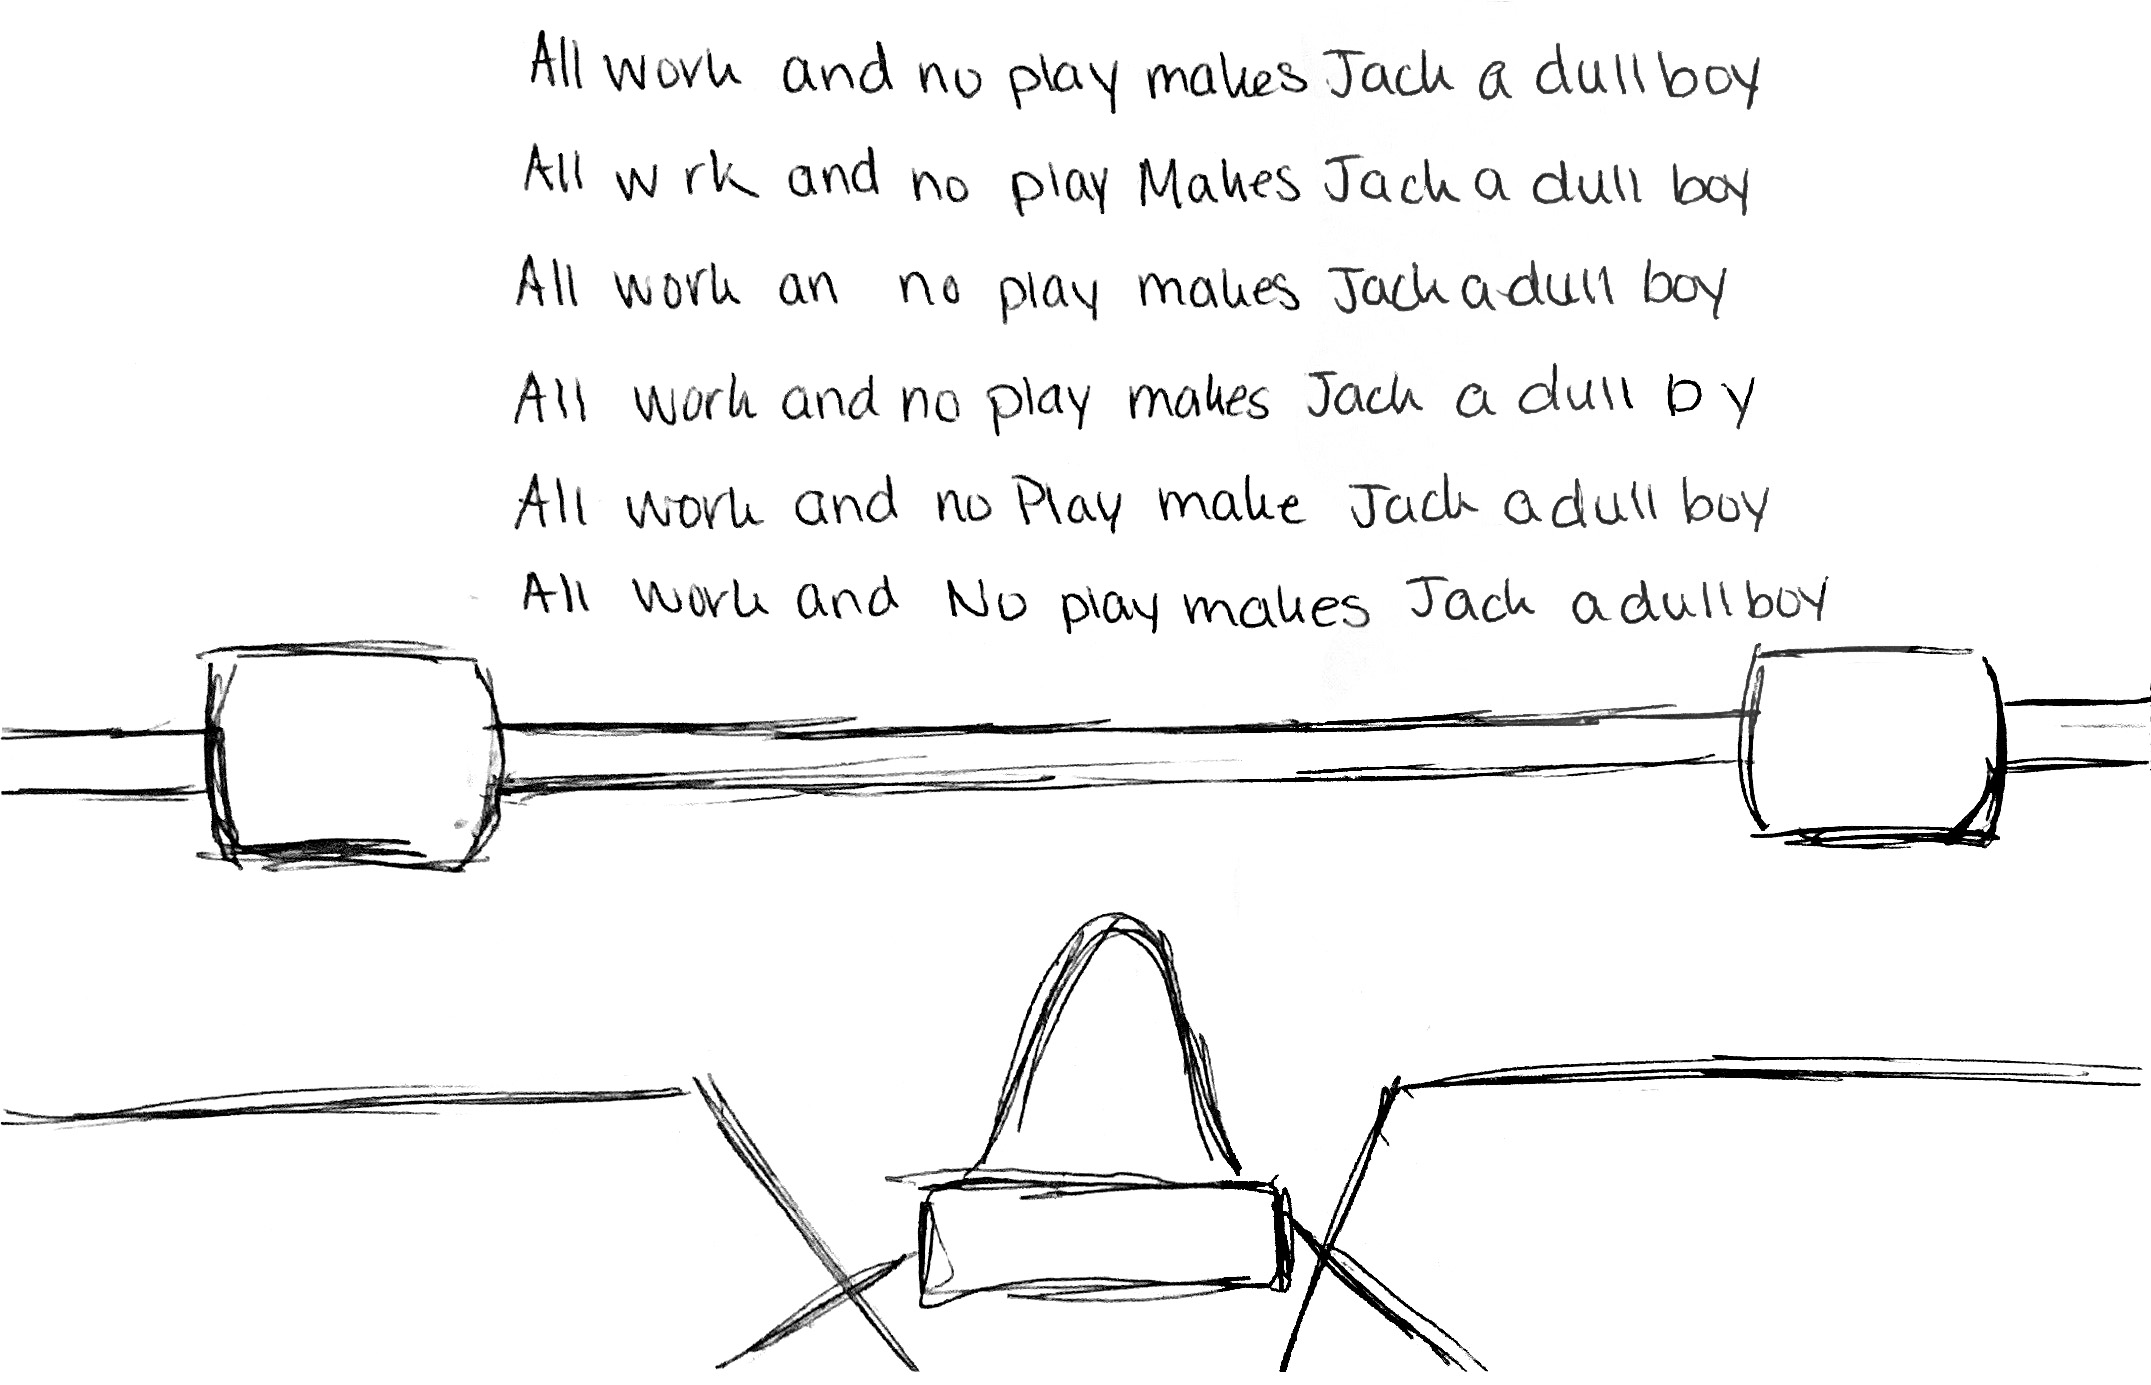 All work and no play makes Jack a dull boy
All w rk and no play Makes Jack a dull boy
All work an no play makes Jack a dull boy
All work and no play makes Jack a dull b y
All work and no Play make Jack a dull boy
All work and No play makes Jack a dull boy